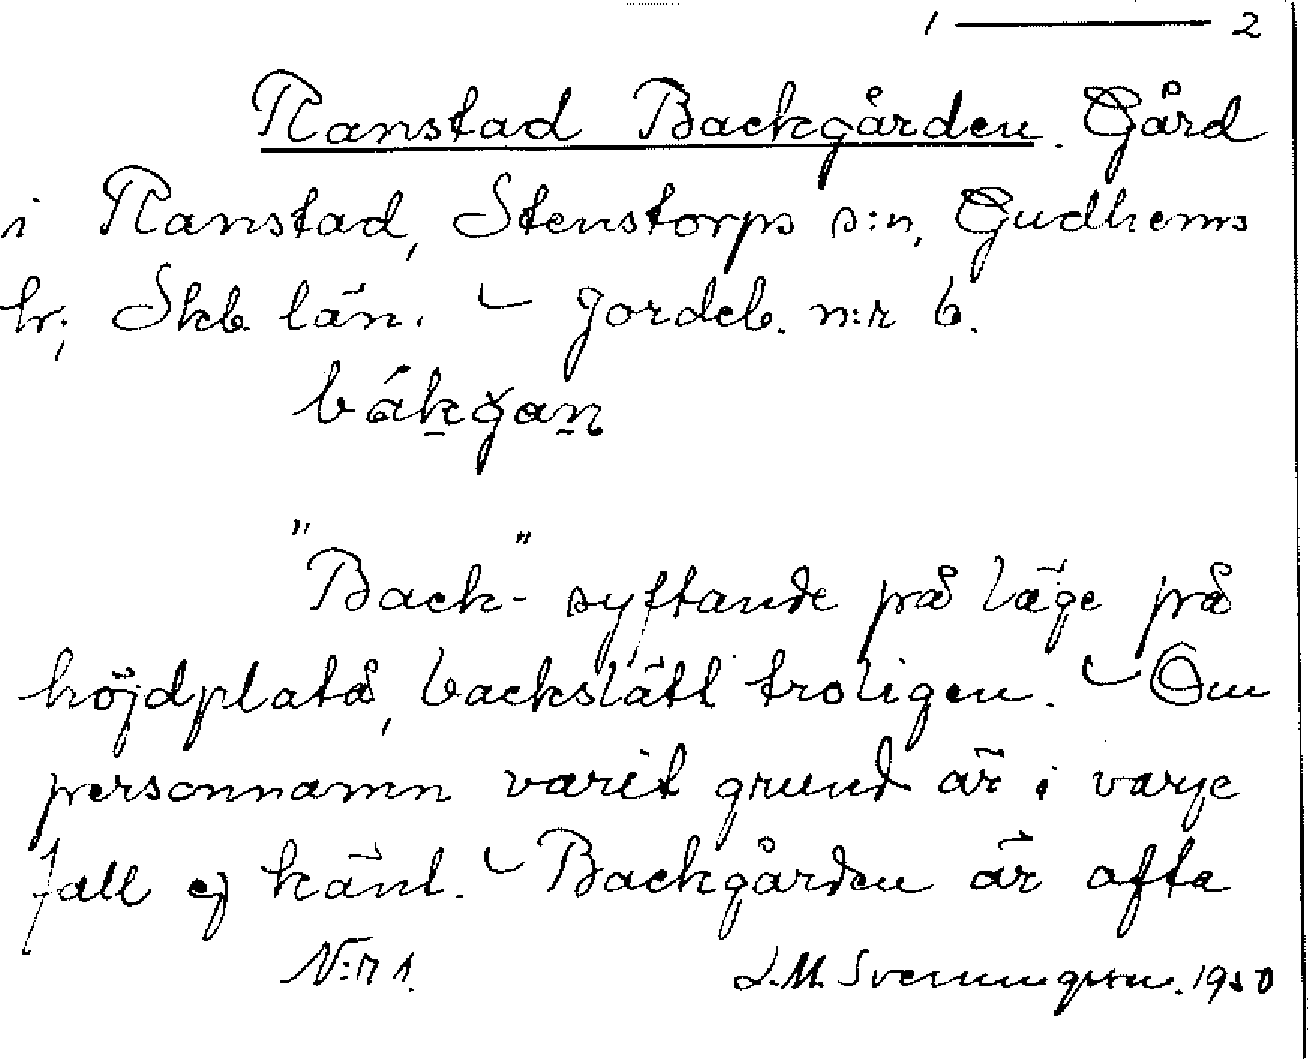 1 — 2
Ranstad Backgården. Gård
i Ranstad, Stenstorps s:n, Gudhems
hr; Skb. län. – Jordeb. n:r 6.
bákgan
"Back-" syftande på läge på
höjdplatå, backslätt troligen. – Om
personnamn varit grund är i varje
fall ej känt. – Backgården är ofta
N:r 1. S.M. Svenungsson. 1930